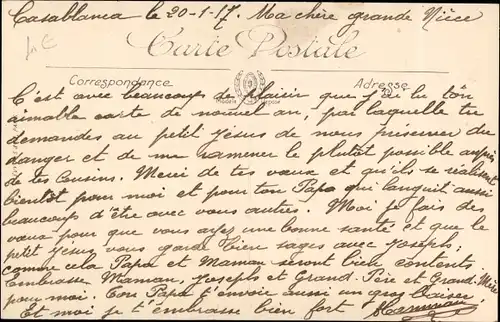 Casablanca le 20-1-17. Ma chère grande Nièce
Carte Postale
Correspondance Adresse
C'est avec beaucoups de plaisir que j'ai lu ton
aimable carte de nouvel an, par laquelle tu
demandes au petit Jesus de nous preserver du
danger et de me ramener le plutot possible auprès
de tes Cousins. Merci de tes vœux et qu'ils se réalisent
bientot pour moi et pour ton Papa qui languit aussi
beaucoups d'être avec vous autres. Moi je fais des
vœux pour que vous ayez une bonne santé et que le
petit Jésus vous garde bien sages avec Joseph;
comme cela Papa et Maman seront bien contents
Embrasse Maman, Joseph et Grand-Père et Grand-Mère
pour moi. Ton Papa t'envoie aussi un gros baiser.
Et moi je t'embrasse bien fort